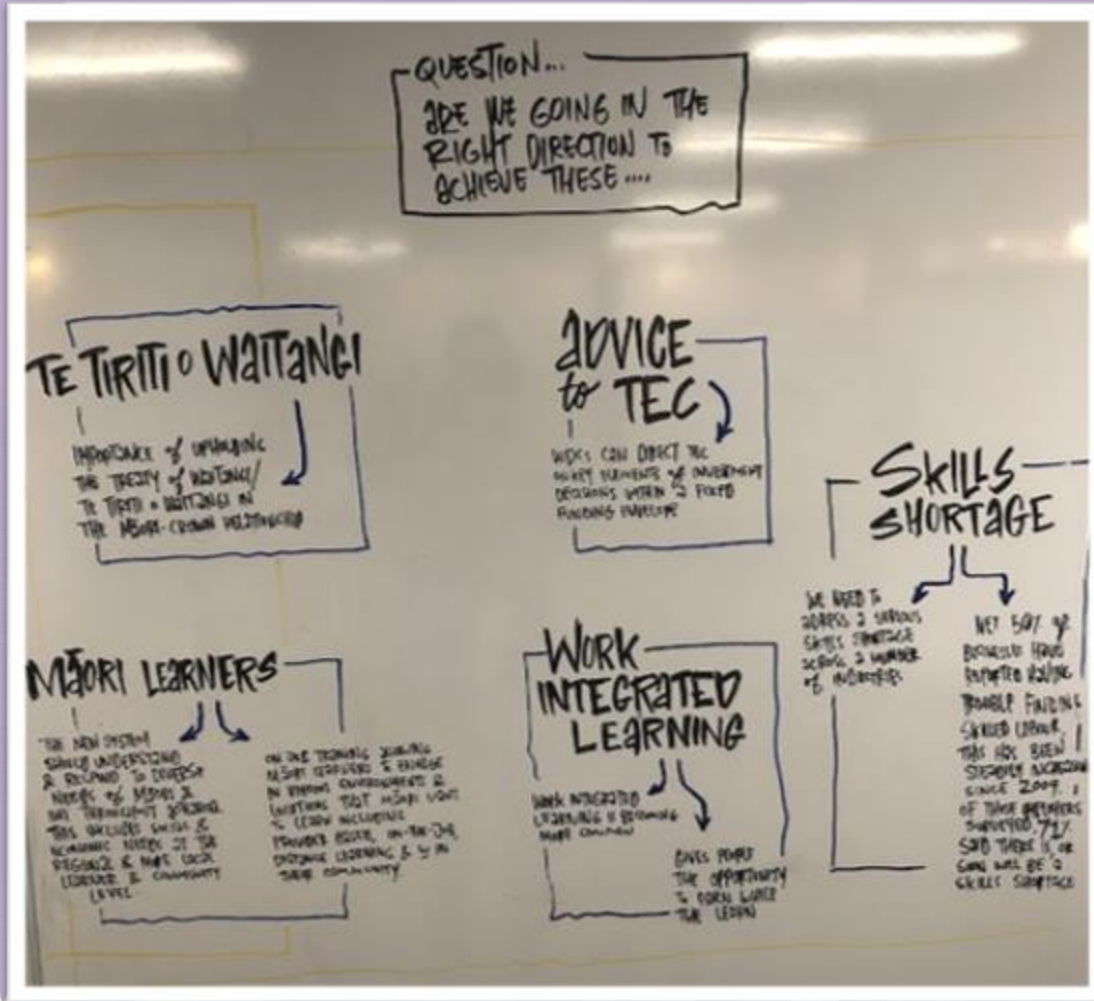 QUESTION...
ARE WE GOING IN THE
RIGHT DIRECTION TO
ACHIEVE THESE ....
TE TIRITI O WAITANGI
IMPORTANCE of UPHOLDING
THE TREATY of WAITANGI/
TE TIRITI O WAITANGI IN
THE MĀORI-CROWN RELATIONSHIP
ADVICE
to TEC
WDCs CAN DIRECT TEC
ON KEY ELEMENTS of INVESTMENT
DECISIONS WITHIN A FIXED
FUNDING ENVELOPE
SKILLS
SHORTAGE
WE NEED TO
ADRESS A SERIOUS
SKILLS SHORTAGE
ACROSS A NUMBER
of INDUSTRIES
NET 50% of
BUSINESSES HAVE
REPORTED HAVING
TROUBLE FINDING
SKILLED LABOUR,
THIS HAS BEEN
STEADILY INCREASING
SINCE 2009.
OF THOSE EMPLOYERS
SURVEYED, 71%
SAID THERE IS OR
SOON WILL BE A
SKILLS SHORTAGE
MĀORI LEARNERS
THE NEW SYSTEM
SHOULD UNDERSTAND
& RESPOND TO DIVERSE
NEEDS of MĀORI &
THIS INCLUDES SKILLS &
ECONOMIC NEEDS AT THE
REGIONAL & MORE LOCAL
LEARNER & COMMUNITY
LEVEL
ON JOB TRAINING ALLOWING
MĀORI LEARNERS TO ENGAGE
IN VARIOUS ENVIRONMENTS &
LOCATIONS THAT MĀORI WANT
TO LEARN INCLUDING
PROVIDER BASED, ON-THE-JOB,
DISTANCE LEARNING & IN
THEIR COMMUNITY
WORK
INTEGRATED
LEARNING
WORK INTEGRATED
LEARNING IS BECOMING
MORE COMMON
GIVES PEOPLE
THE OPPORTUNITY
TO EARN WHILE
THE LEARN